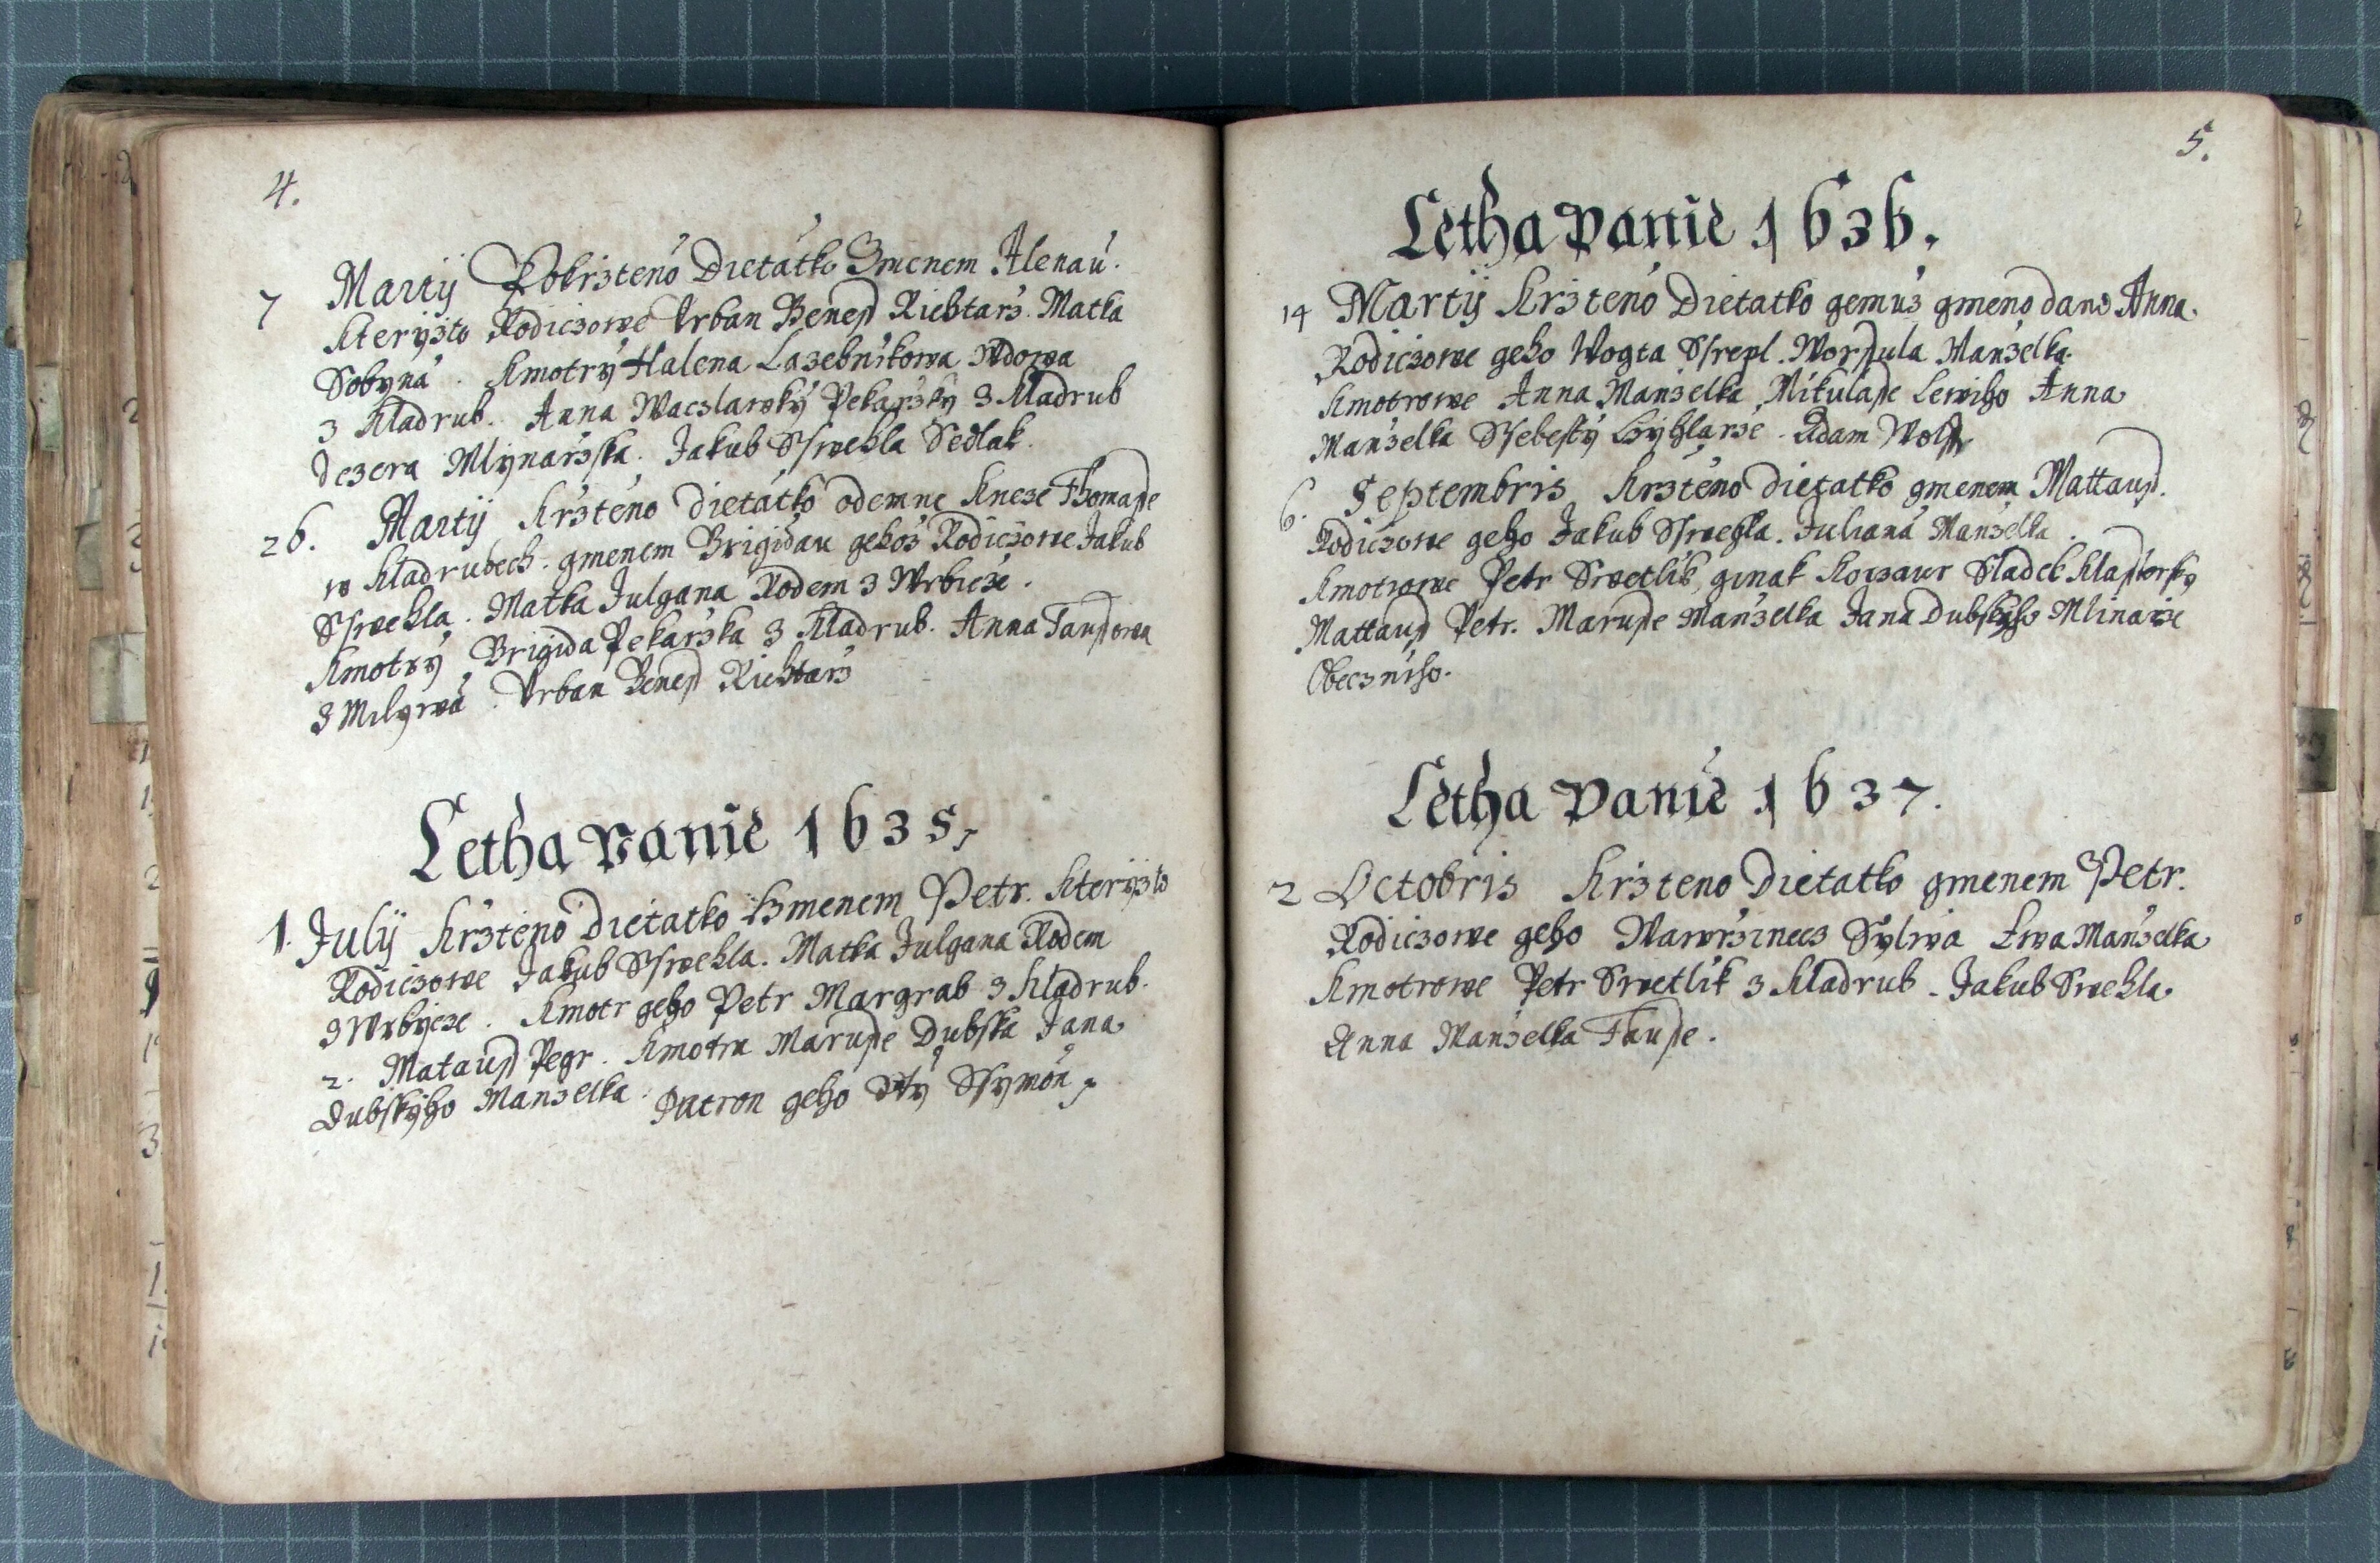 4.
7 Martij Pokrzteno Dietatko Gmenem Alenau.
Kteryzto Rodiczowe Vrban Beness Richtarz. Matka
Sobyna. Kmotry Halena Lazebnikowa Wdowa
z Kladrub. Anna Waczlawsky Pekarzky z Kladrub
Dczera Mlynarzska. Jakub Sswehla Sedlak.
26. Martij Krzteno Dietatko odemne Kneze Thomasse
w Kladrubech. gmenem Brigidau gehoz Rodiczowe Jakub
Sswehla. Matka Julgana Rodem z Wrbicze.
Kmotry Brigida Pekarzka z Kladrub. Anna Taussowa
z Milywa. Vrban Beness Richtarz
Letha Panie 1635,
1. Julij Krzteno Dietatko Gmenem Petr. Kteryzto
Rodiczowe Jakub Sswehla. Matka Julgana Rodem
z Wrbycze. Kmotr geho Petr Margrab z Kladrub.
2. Matauss Pegr. Kmotra Marusse Dubska Jana
Dubskyho Manzelka. Patron geho Sty Ssymon
5.
Letha Panie 1636.
14 Martij Krzteno Dietatko gemuz gmeno dano Anna.
Rodiczowe geho Wogta Ssrepl. Worssula Manzelka.
Kmotrowe Anna Manzelka Mikulasse Lewiho Anna
Manzelka Ssebesty Czyhlarze. Adam Wolff
6. Septembris Krzteno Dietatko gmenem Mattauss.
Rodiczowe geho Jakub Sswehla. Juliana Manzelka.
Kmotrowe Petr Swetlik, ginak Koczaur Sladek Klassterky
Mattauss Petr. Marusse Manzelka Jana Dubskyho Mlinarze
Obeczniho.
Letha Panie 1637.
2 Octobris Krzteno Dietatko gmenem Petr.
Rodiczowe geho Wawrzinecz Sylwa Ewa Manzelka
Kmotrowe Petr Swetlik z Kladrub. Jakub Swehla.
Anna Manzelka Tausse.